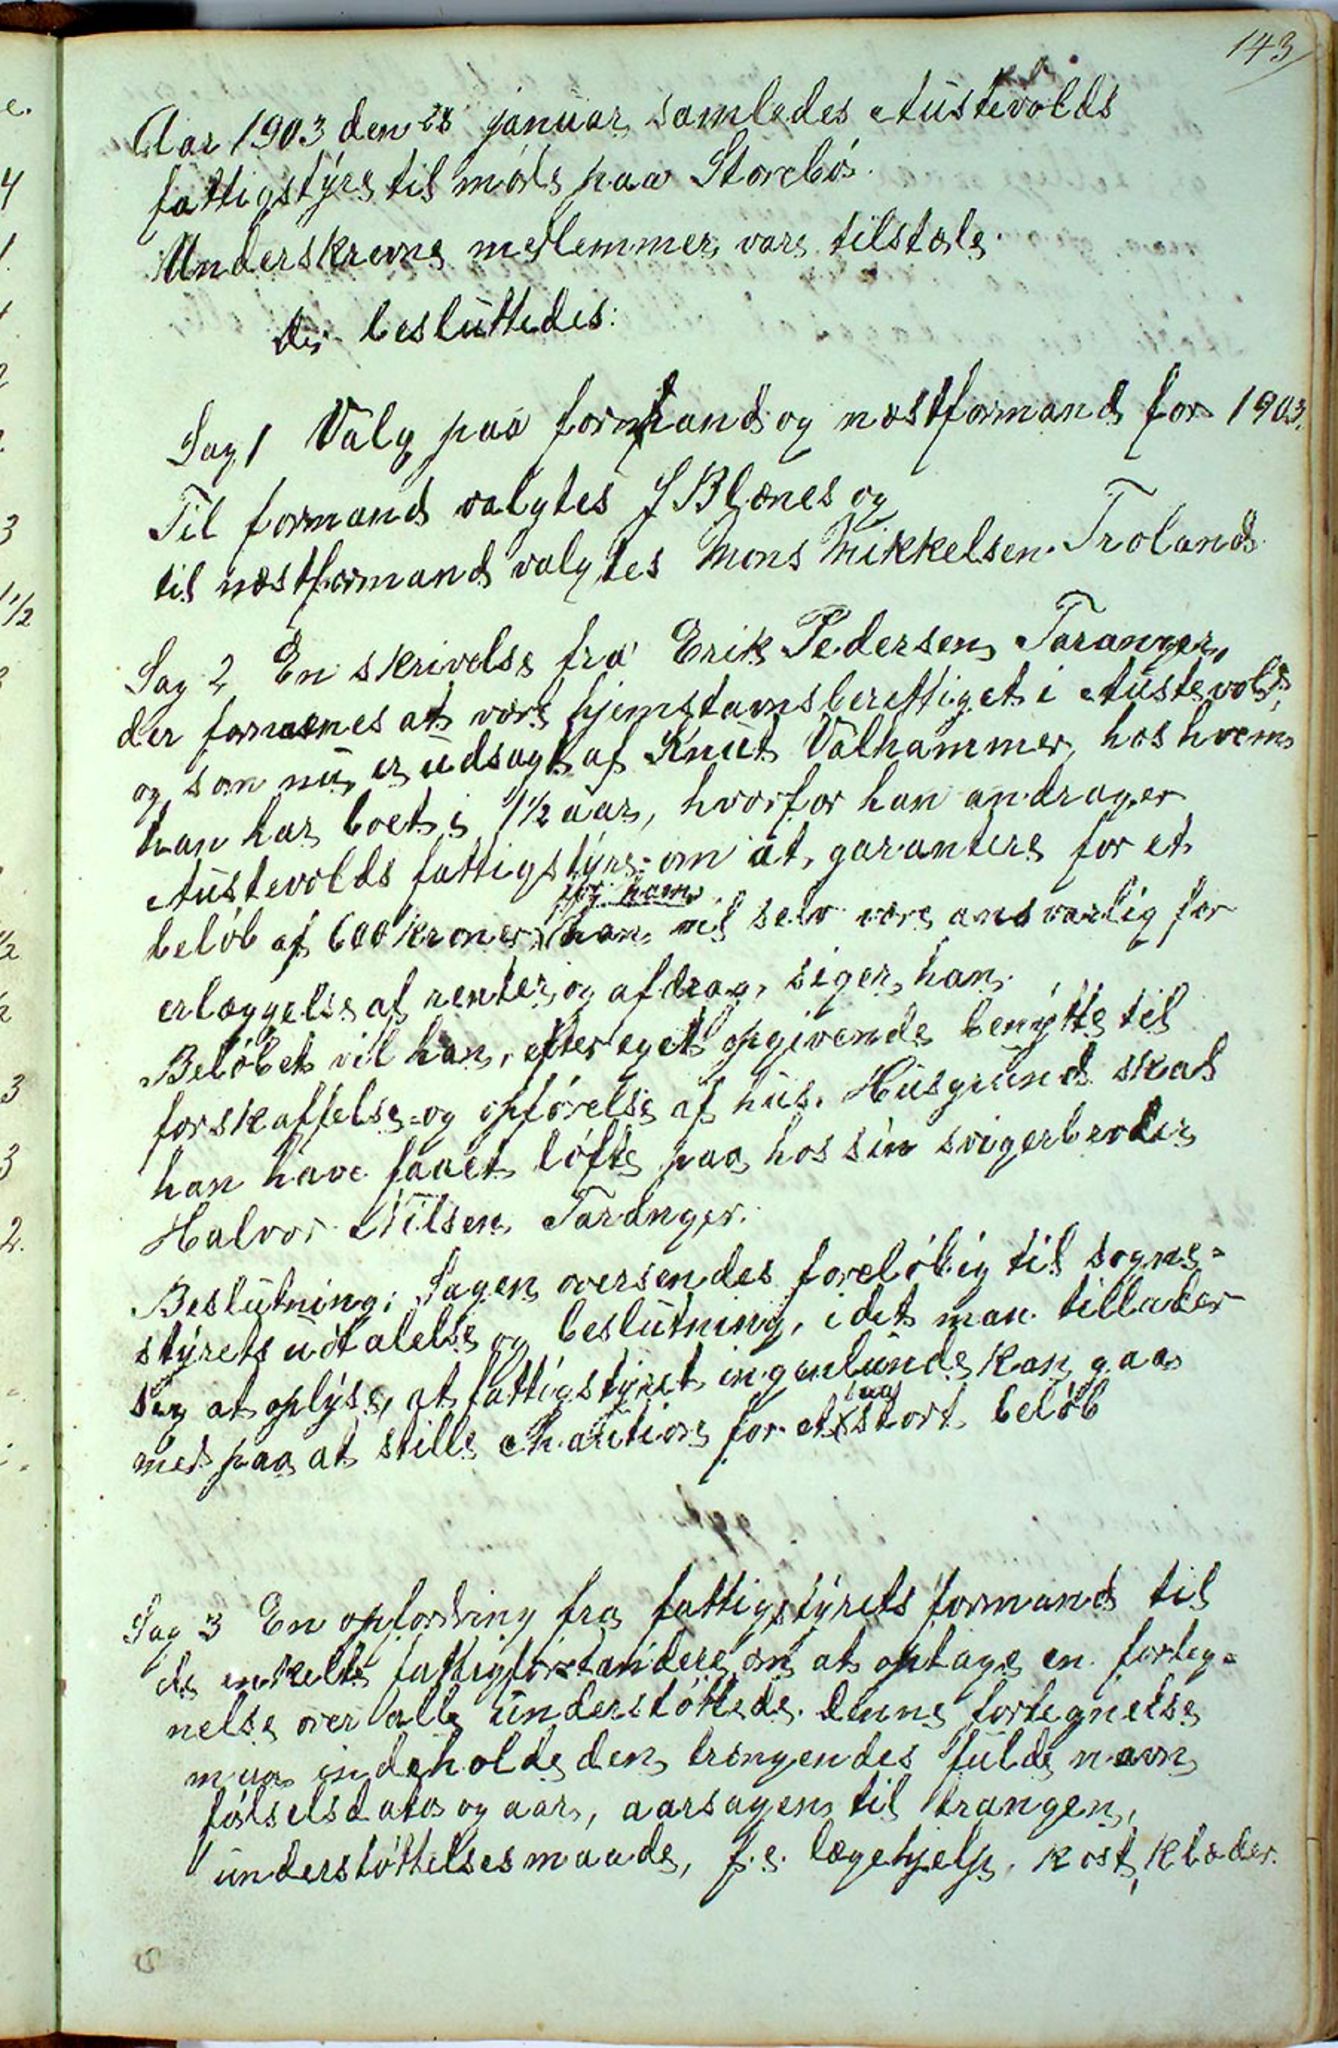 143
Aar 1903 den 28 januar samledes Austevolds
fattigstyre til møde paa Storebø.
Underskrevne medlemmer vare tilstede.
der besluttedes:
Sag 1 Valg paa formand og næstformand for 1903.
Til formand valgtes J Blænes og
til næstformand valgtes Mons Mikkelsen Troland
Sag 2 En skrivelse fra Erik Pedersen Taranger,
der formenes at være hjemstavnsberettiget i Austevold,
og som nu er udsagt af Knut Valhammer, hos hvem
han har boet i 1½ aar, hvorfor han andrager
Austevolds fattigstyre om at garantere for et
for ham
beløb af 600 kroner, han vil selv være ansvarlig for
erlæggelse af renter og afdrag, siger han.
Beløbet vil han, efter eget opgivende benytte til
forskaffelse og opførelse af hus. Husgrund skal
han have faaet løfte paa hos sin svigerbroder
Halvor Nilsen Taranger.
Beslutning: Sagen oversendes foreløbig til sogne-
styrets udtalelse og beslutning, idet man tillader
sig at oplyse, at fattigstyret ingenlunde kan gaa
saa
med paa at stille Chautions for et stort beløb
Sag 3 En opfordring fra fattigstyrets formand til
de enkelte fattigforstandere om at optage en forteg-
nelse over alle understøttede. Denne fortegnelse
maa indeholde den trængendes fulde navn
fødselsdato og aar, aarsagen til trangen,
understøttelsesmaade, f.e. lægehjelp, kost, klæder.